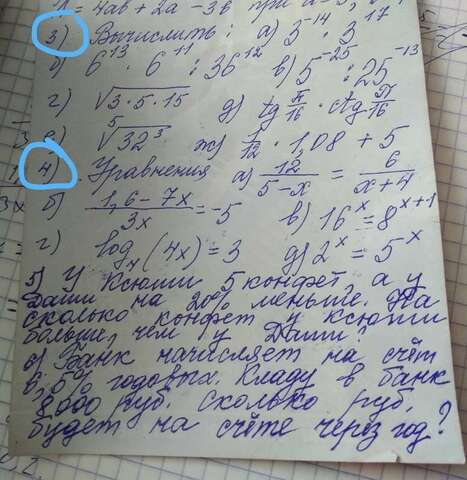 A = 4ab + 2a - 3b при a=5,
3) Вычислить: а) 3^-14 · 3^17
б) 6^13 · 6^11 : 36^12 в) 5^-25 : 25^-13
г) √(3·5·15) д) tg π/16 · ctg π/16
е) ⁵√(32³) ж) 1/12 · 1,08 + 5
4) Уравнения а) 12/(5-x) = 6/(x+4)
б) (1,6-7x)/3x = -5 в) 16^x = 8^(x+1)
г) log₄(4x) = 3 д) 2^x = 5^x
5) У Ксюши 5 конфет, а у
Даши на 20% меньше. На
сколько конфет у Ксюши
больше, чем у Даши?
6) Банк начисляет на счёт
6,5% годовых. Кладу в банк
8000 руб. Сколько руб.
будет на счёте через год?